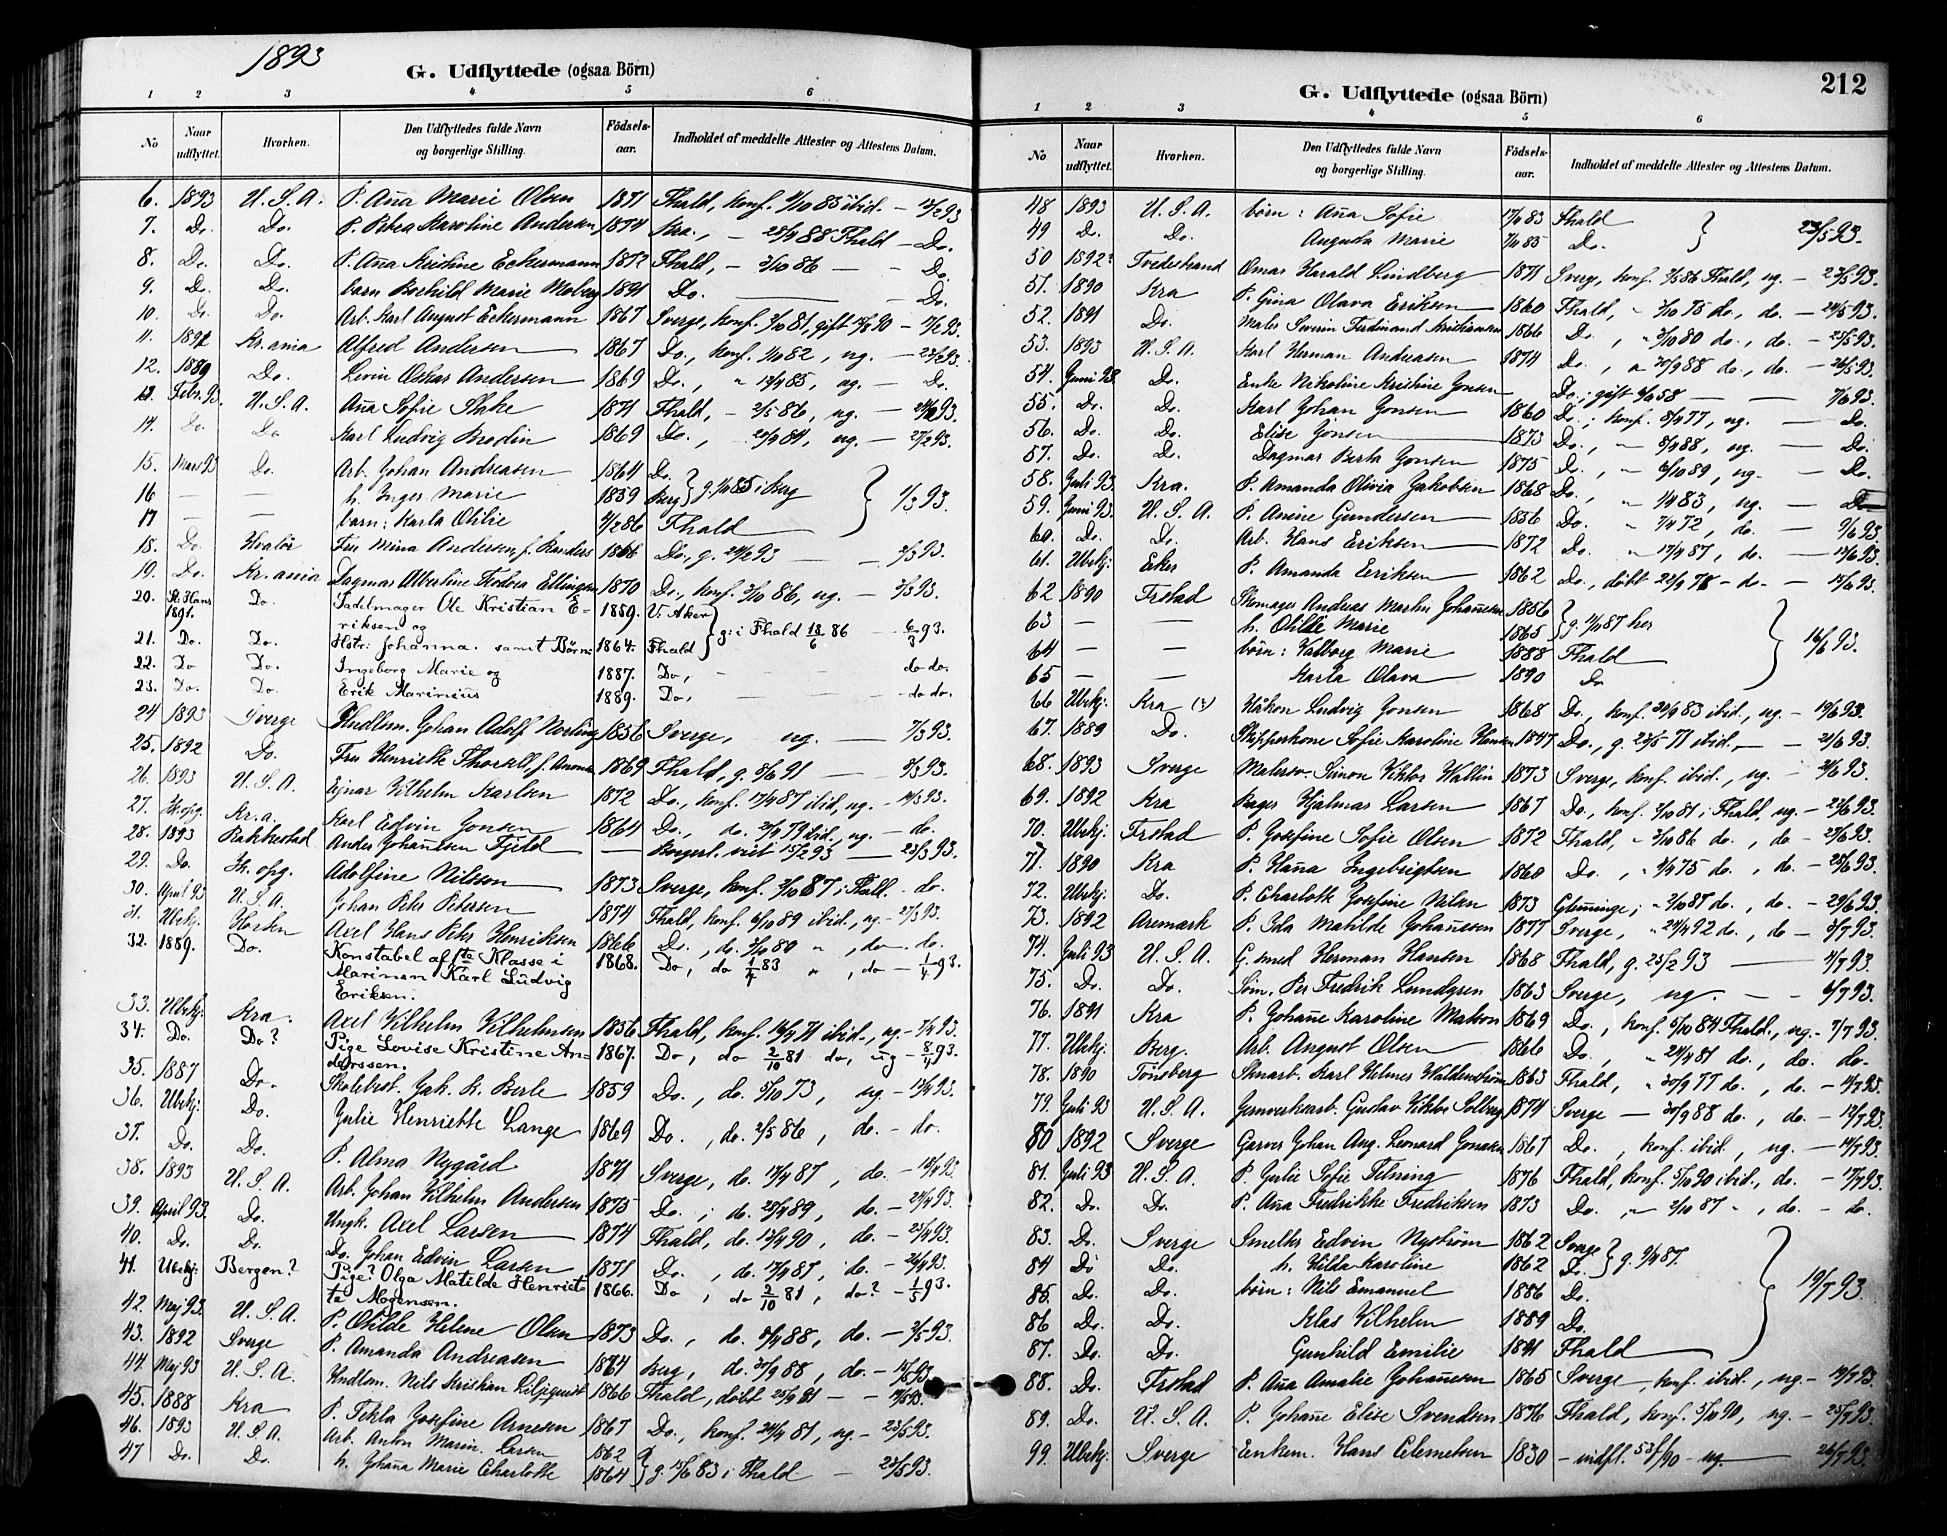 1893
G. Udflyttede (ogsaa Börn)
1 2 3 4 5 6
No Naar udflyttet. Hvorhen. Den Udflyttedes fulde Navn og borgerlige Stilling. Födsels-aar. Indholdet af meddelte Attester og Attestens Datum.
6. 1893 U.S.A. P. Aña Marie Olsen 1871 Fhald, konf. 1/10 85 ibid. —
7. Do. Do. P. Petrea Karoline Andersen 1874 Kra., — 28/9 88 Fhald — Do.
8. Do. Do. P. Aña Kristine Eckermann 1872 Fhald, — 3/10 86 — Do.
9. Do. Do. barn Borhild Marie Moberg 1891 Do. — Do.
10. Do. Do. Arb. Karl August Eckermann 1867 Sverge, konf. 2/10 81, gift
11. Kr.ania Alfred Andersen 1867 Do., konf. 1/10 82, ug. —
12. 1889 Do. Levin Oskar Andersen 1869 Do., " 85, ug. — Do.
13. Febr. 93. U.S.A. Aña Sofie Slake 1871 Fhald, — 2/5 86, ug. —
14. Do. Do Karl Ludvig Brodin 1869 Do., 84, ug. — 27/2 93.
15. Mars 93 Do. Arb. Johan Andreasen 1864 Do.
16 — — h. Inger Marie 1859 Berg } g. 85 i Berg } 1/3 93.
17 — — barn: Karla Otilie 86 Fhald
18. Do. Hvalör Fru Mina Andersen, f. Randers Do., g. 93 — 93.
19. Do. Kr.ania Dagmar Albertine Teodora Ellingsen 1870 Do., konf. 3/10 86, ug. — 93.
20. St. Hans 1891. Do. Sadelmager Ole Kristian E- 1859. V. Aker
riksen og } g: i Fhald 18/6 86 — 6/3 93.
21. Do. Do. Hstr: Johanna. samt Börn: 1864. Fhald
22. Do Do. Ingeborg Marie og 1887. Do, — do do.
23. Do. Do. Erik Marinius 1889. Do, — do do.
24 1893 Sverge Hndlsm. Johan Adolf Norling 1856 Sverge, ug. — 7/3 93.
25. 1892 Do. Fru Henriette Thorsell, f. 1869 Fhald, g. 91 — 93.
26. 1893 U.S.A. Ejnar Vilhelm Karlsen 1872 Do., konf. 87 ibid, ug. — 93.
27. Ik. opg. Kr.a. Karl Edvin Jonsen 1864 Do., do. 79 ibid, ug. — do.
28. 1893 Rakkestad Anders Johañesen Fjeld — Borgerl. viet 15/2 93 — 23/3 93.
29. Do. Ik. opg. Adolfine Nilsson 1873 Sverge, konf. 2/10 87 i Fhald. do.
30. April 93 U.S.A. Johan Petr Petersen 1874 Fhald, konf. 6/10 89 ibid., ug. — 27/3 93.
31. Ubekj. Horten Axel Hans Petr Henriksen 1866 Do., do. 3/10 80 " , do — do.
32. 1889. Do. Konstabel af 1ste Klasse i 1868. Do, do 1/4 83 " , do — 1/4 93.
Marinen Karl Ludvig
Eriksen.
33. Ubekj: Kra. Axel Vilhelm Vilhelmsen 1856 Fhald, konf. 71 ibid., ug — 93.
34. Do. Do? Pige Lovise Kristine An- 1867. Do, do 2/10 81 do, ug — 8/4 93.
derssen.
35. 1887 Do. Jak. K. Berle 1859 Do., do. 5/10 73, ug. — 93.
36. Ubekj: Do. Julie Henriette Lange 1869 Do., do. 2/5 86, do. — do.
37. Do. Do. P. Alma Nygård 1871 Sverge, do. 87, do. — 93
38. 1893 U.S.A. Arb. Johan Vilhelm Andersen 1875 Do., do. 89, do. — 93.
39. April 93. Do. Ungk. Axel Larsen 1874 Fhald, do. 90, do. — 93.
40. Do. Do. Do. Johan Edvin Larsen 1871 Do., do. 87, do. — 93.
41. Ubekj: Bergen? Pige? Olga Matilde Henriet- 1866. Do, do 2/10 81, do? — 1/5 93.
te Mogensen.
42. Maj 93. U.S.A. P. Otilde Helene Olsen 1873 Do., do. 88, do. — 2/5 93.
43. 1892 Sverge P. Amanda Andreasen Berg, do. 30/9 88, do. — 93.
44. Maj 93 U.S.A. Hndlsm. Nils Kristian Liljequist 1866 Fhald, döbt 25/9 81 —
45. 1888 Kra P. Tekla Josefine Arnesen 1867 Do., konf. 81, ug. — 23/5 93.
46. 1893 U.S.A. Arb. Anton Marin. Larsen 1862
47 Do. Do. h. Johaña Marie Charlotte 1864 } g. 83 i Fhald — 93.
212
G. Udflyttede (ogsaa Börn)
1 2 3 4 5 6
No Naar udflyttet. Hvorhen. Den Udflyttedes fulde Navn og borgerlige Stilling. Födsels-aar. Indholdet af meddelte Attester og Attestens Datum.
48 1893 U.S.A. börn: Aña Sofie 83 Fhald
49 Do. Do. Augusta Marie 85 Do. } 23/5 93.
50 1892? Tvedestrand Omar Harald Lindberg 1871 Sverg, konf. 86 Fhald, ug — 93.
51. 1890 Kra P. Gina Olava Eriksen 1860 Fhald, " 75 do., do. — 93.
52. 1891 Do. Maler Severin Ferdinand Kristiansen 1866 Do., " 3/10 80 do., do — 93.
53. 1893 U.S.A. Karl Herman Andreasen 1874 Do., " 30/9 88 do., do. — 93.
54. Juni 93. Do. Enke Nikoline Kristine Jonsen Do., gift 58 — 7/6 93.
55. Do. Do. Karl Johan Jonsen 1860 Do., konf. 77, ug. — Do.
56. Do. Do. Elise Jonsen 1873 Do., " 88, ug. — Do.
57. Do. Do. Dagmar Berta Jonsen 1875 Do., " 6/10 89, ug. — Do.
58. Juli 93. Kra. P. Amanda Olivia Jakobsen 1868 Do., " 83, ug. — Do
59. Juni 93. U.S.A. P. Anine Gundersen 1856 Do. " 72, do. 9/6 93.
60. Do. Do. Arb. Hans Eriksen 1872 Do. " 87, do. — 93.
61. Ubekj: Eker P. Amanda Eriksen 1862 Do., döbt 78 — do. — 93.
62 1890 Frstad Skomager Andreas Martin Johañesen 1856
63 — — h. Otilie Marie 1865 } g. 87 her } 16/6 93.
64 — — börn: Valborg Marie 1888 Fhald
65 — — Karla Olava 1890 Do
66 Ubekj: Kra (?) Håkon Ludvig Jonsen 1868 Do., konf. 83 ibid., ug — 93.
67. 1889 Do. Skipperkone Sofie Karoline Hansen 1847 Do., g. 71 ibid., — 21/6 93.
68. 1893 Sverge Malersv. Simon Viktor Wallin 1873 Sverge, konf. ibid., ug — 93.
69. 1892 Kra Bager Hjalmar Larsen 1867 Do., konf. 2/10 81 i Fhald, ug — 93.
70. Ubekj: Frstad P. Josefine Sofie Olsen 1872 Fhald, " 3/10 86 do., do — 27/6 93.
71. 1890 Kra P. Haña Ingebrigtsen 1860 Do., " 75 do., do. — 93.
72. Ubekj: Do. P. Charlotte Josefine Nilsen 1873 Glemminge, " 2/10 87 do., do. — 29/6 93.
73. 1892 Aremark P. Ida Matilde Johañesson 1877 Sverge, " 92 do., do — 93.
74. Juli 93 U.S.A. G. smed Herman Hansen 1868 Fhald, g. 25/2 93 — 93.
75. Do. Do. Söm. Per Fredrik Lundgren 1863 Sverge, ug. — 6/7 93.
76. 1891 Kra P. Johañe Karoline Matson 1869 Do., konf. 5/10 84 Fhald., ug. — 7/7 93.
77. Ubekj: Berg. Arb. August Olsen 1866 Do., " 81 do., do. do.
78. 1890 Tönsberg Stenarb. Karl Helmer Waldenström 1863 Fhald, " 30/9 77 do., do. — 93.
79. Juli 93 U.S.A. Jernverksarb. Gustav Viktor Solberg 1874 Sverge — 30/9 88 do., do. — 93.
80 1892 Sverge Garver Johan Aug. Leonard Jonasson 1867 Do., konf. ibid, ug — 93.
81. Juli 93 U.S.A. P. Julie Sofie Telning 1876 Fhald, konf. 5/10 90 ibid., do. — 17/7 93.
82. Do. Do. P. Aña Fredrikke Fredriksen 1873 Do., " 2/10 87 " , do. — do.
83. Do. Sverge Smelter Edvin Nyström 1862 Sverge
84 Do Do. h. Hilda Karoline 1862 Do. } g. 87.
85. Do. Do. börn: Nils Emanuel 1886 Do. } 19/7 93.
86 Do. Do. Klas Vilhelm 1889 Do.
87. Do. Do. Gunhild Emilie 1891 Fhald
88. Do. Frstad P. Aña Amalie Johañesen 1865 Sverge, konf. ibid., ug — 93.
89. Do. U.S.A. P. Johañe Elise Svendsen 1876 Fhald, konf. 5/10 90, ug. — 25/7 93.
99. Ubekj: Sverge Enkem. Hans Clemetsen 1830 — indfl. 90 — ug — 26/7 93.